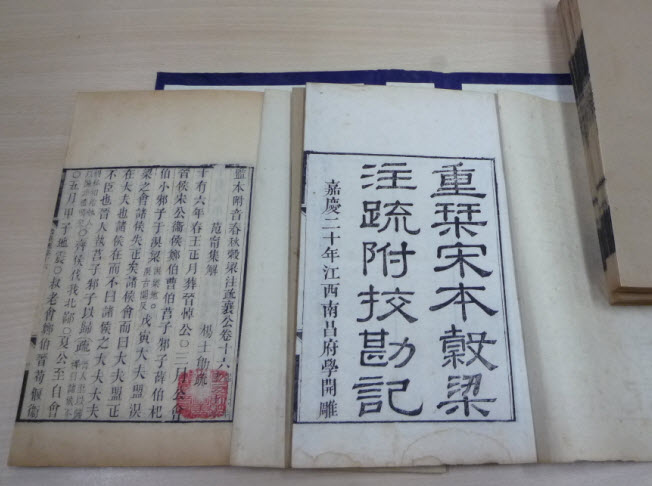 重栞宋本穀梁
注疏附挍勘記
嘉慶二十年江西南昌府學開雕
監本附音春秋穀梁注疏襄公卷十六
范甯集解
楊士勛疏
十有六年春王正月葬晉悼公○三月公會
晉侯宋公衞侯鄭伯曹伯莒子邾子薛伯杞
伯小邾子于溴梁
梁之會諸侯失正矣諸侯會而曰大夫盟正
在大夫也諸侯在而不曰諸侯之大夫大夫
不臣也晉人執莒子邾子以歸
齊侯伐我北鄙○夏公至自會
○五月甲子地震○叔老會鄭伯晉荀偃衞